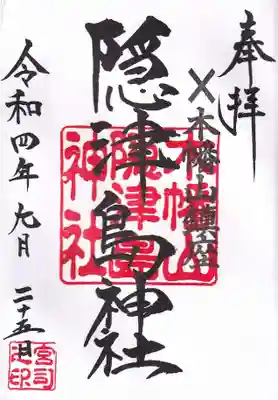 奉拝
×木幡山鎮座
隠津島神社
木幡山
隠津島
神社
令和四年九月
二十五日
宮司
之印